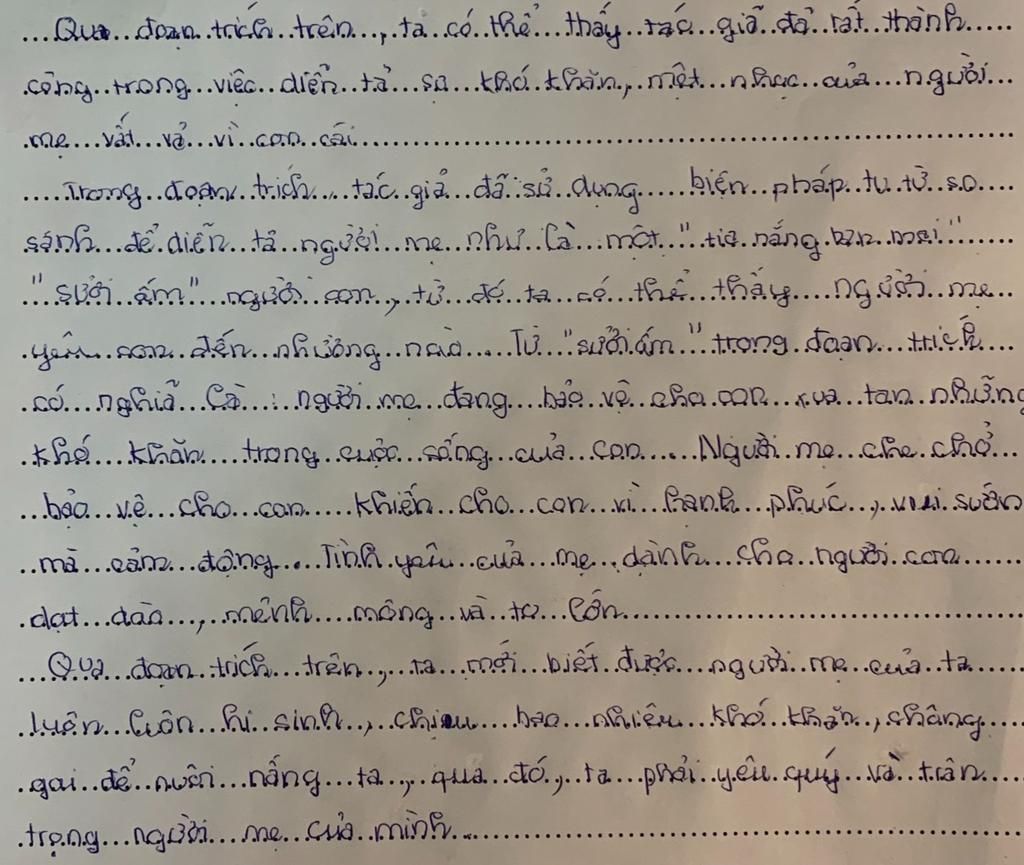 Qua đoạn trích trên, ta có thể thấy tác giả đã rất thành
công trong việc diễn tả sự khó khăn, mệt nhọc của người
mẹ vất vả vì con cái
Trong đoạn trích tác giả đã sử dụng biện pháp tu từ so
sánh để diễn tả người mẹ như là một "tia nắng ban mai"
"sưởi ấm" người con, từ đó ta có thể thấy người mẹ
yêu con đến nhường nào. Từ "sưởi ấm" trong đoạn trích
có nghĩa là: người mẹ đang bảo vệ cho con xua tan những
khó khăn trong cuộc sống của con. Người mẹ che chở
bảo vệ cho con khiến cho con vì hạnh phúc, vui sướn
mà cảm động. Tình yêu của mẹ dành cho người con
dạt dào, mênh mông và to lớn
Qua đoạn trích trên, ta mới biết được người mẹ của ta
luôn luôn hi sinh, chịu bao nhiêu khó khăn, chông
gai để nuôi nấng ta, qua đó, ta phải yêu quý và trân
trọng người mẹ của mình